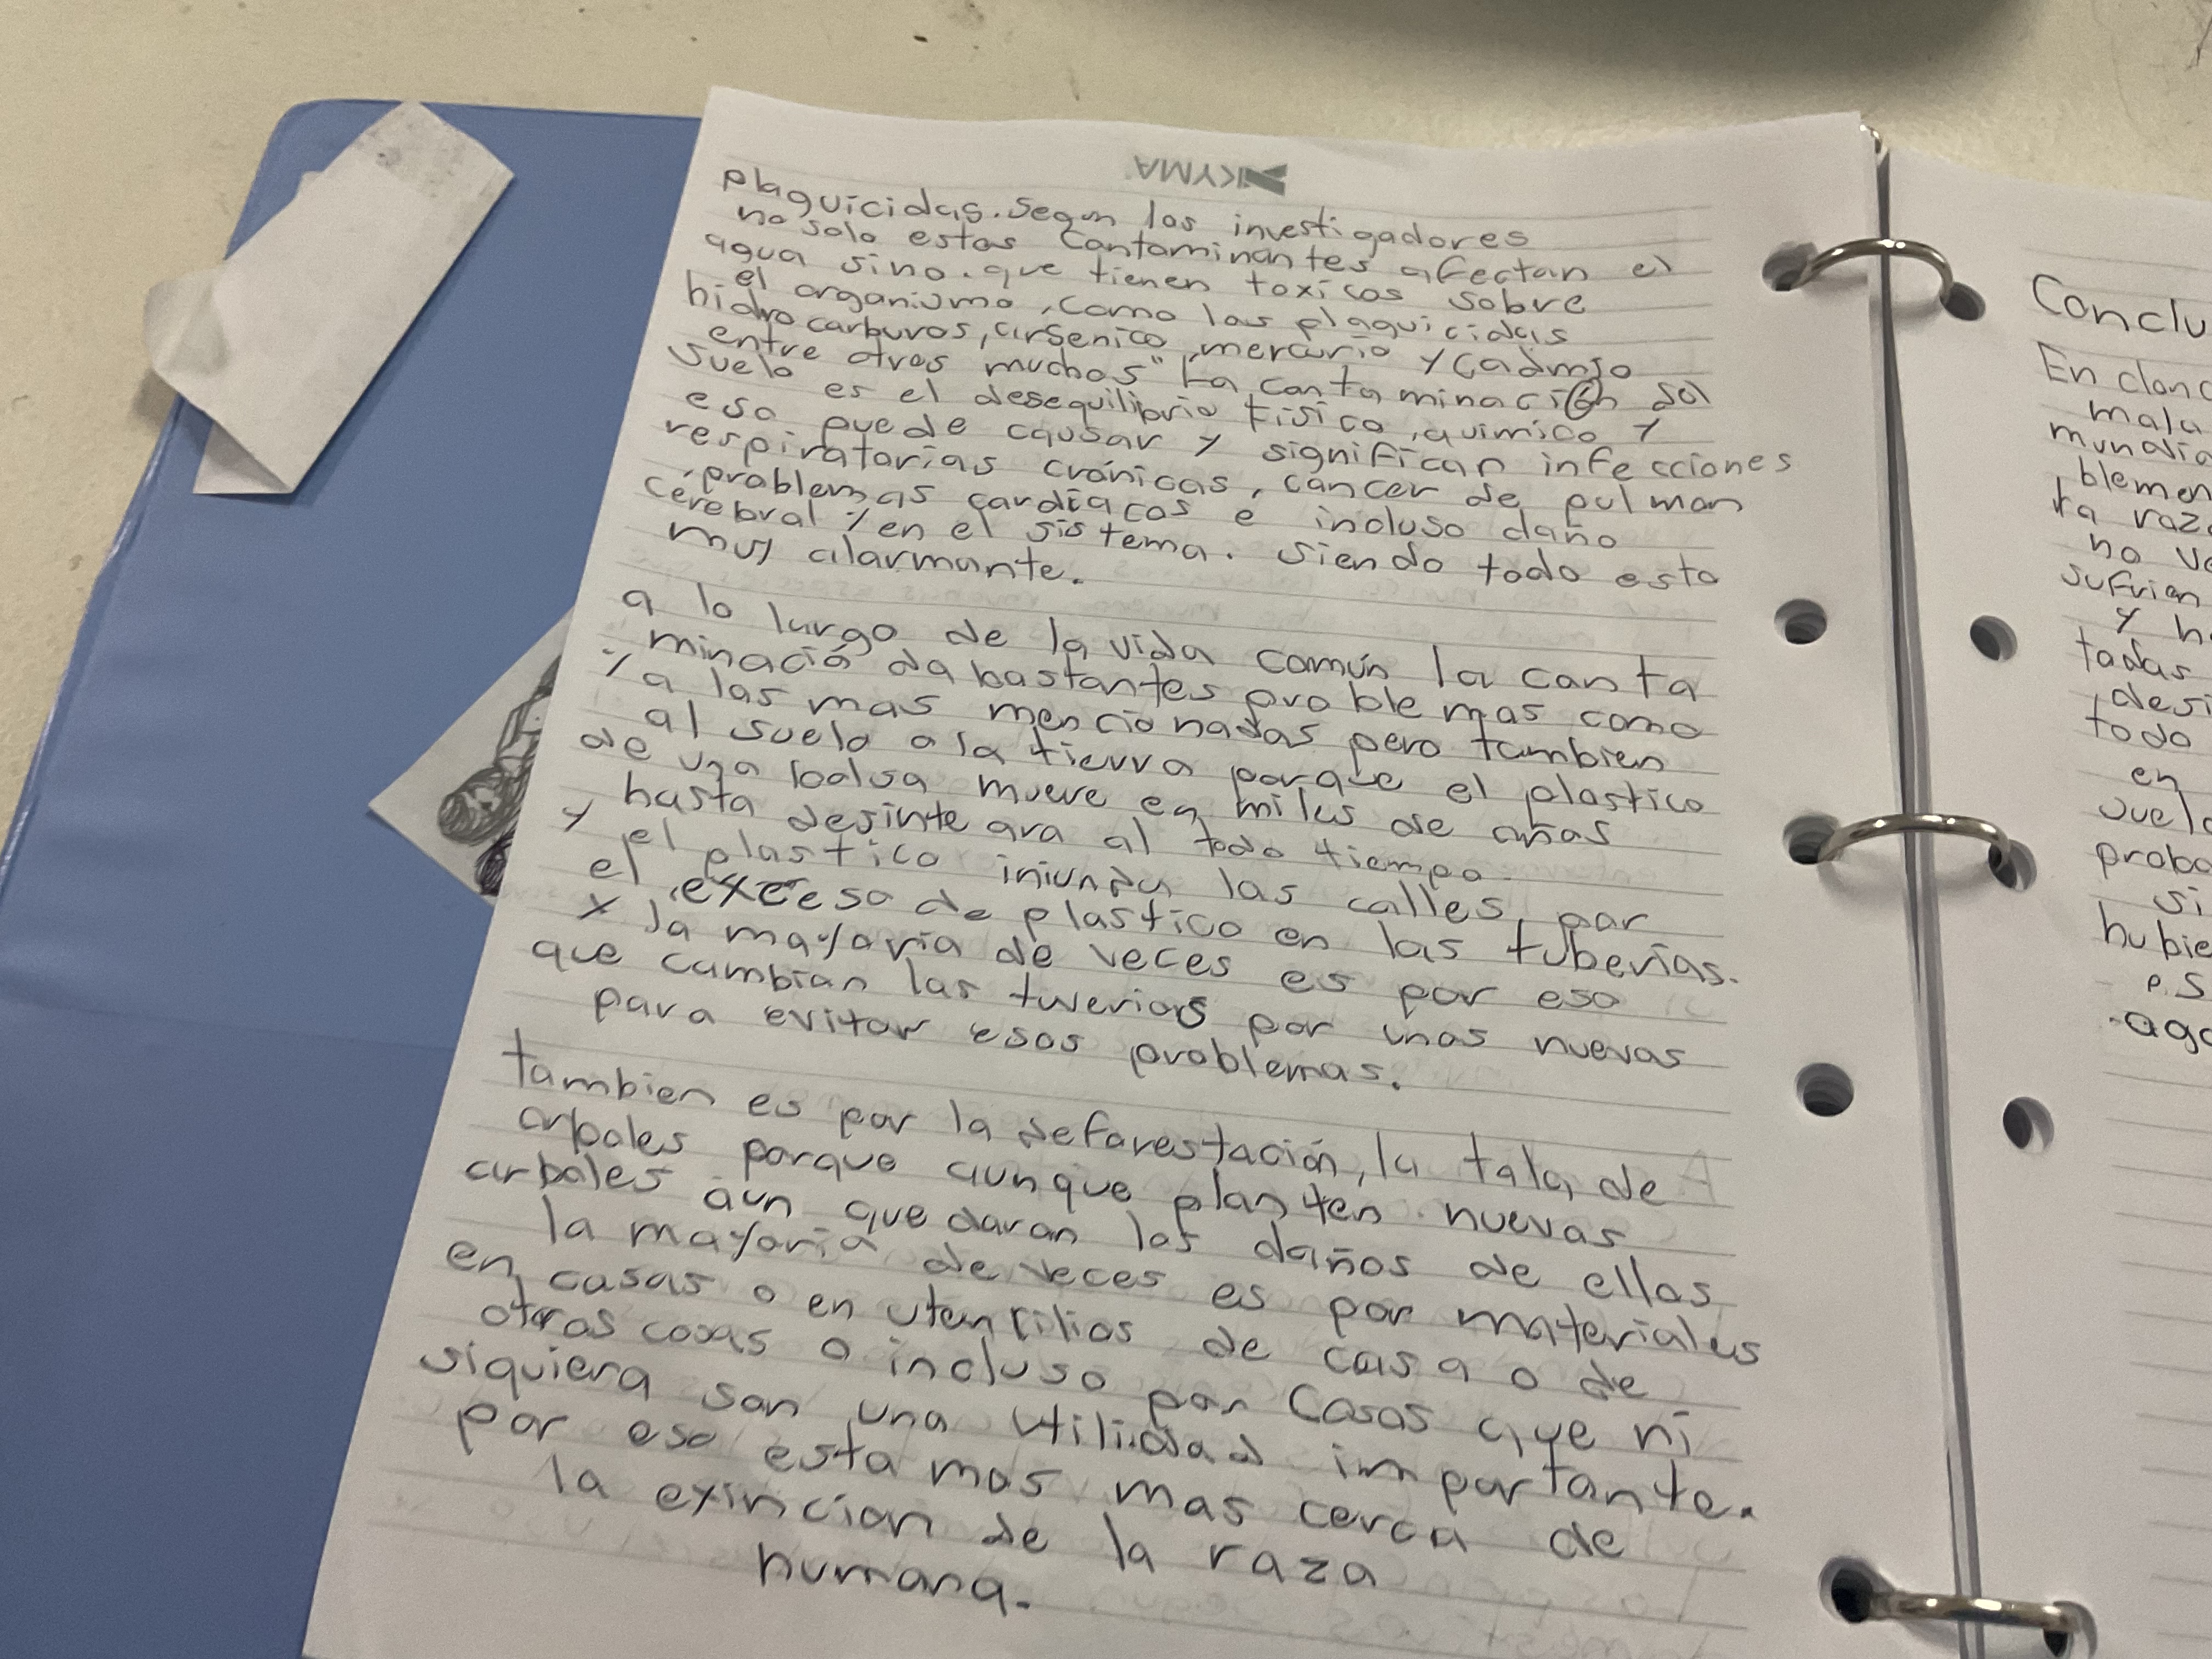 KYMA
plaguicidas. Segun los investigadores
no solo estos contaminantes afectan el
agua sino. que tienen toxicos sobre
el organismo, como los plaguicidas
hidrocarburos, arsenico, mercurio y cadmio
entre otros muchos" La contaminación del
suelo es el desequilibrio físico, quimico y
eso puede causar y significar infecciones
respiratorias crónicas, cancer de pulmon
, problemas cardíacos e incluso daño
cerebral y en el sistema. siendo todo esto
muy alarmante.
a lo largo de la vida común la conta
minació da bastantes problemas como
ya las mas mencionadas pero tambien
al suelo o la tierra porque el plastico
de una bolsa muere en miles de años
hasta desinte ara al todo tiempo
y el plastico las calles, por
el exceso de plastico en las tuberías.
x la mayoria de veces es por eso
que cambian las tuverias por unas nuevas
para evitar esos problemas.
tambien es por la deforestación, la tala de
arboles porque aunque planten nuevos
arboles aun quedaran los daños de ellos
la mayoria de veces es por materiales
en casas o en utencilios de casa o de
otras cosas o incluso por cosas que ni
siquiera son una utilidad importante.
por eso esta mos mas cerca de
la exincion de la raza
humana.
Conclu
En
mala
mundia
blemen
la raz
no v
sufrien
y h
todas
, desi
todo
en
suel
proba
si
hubie